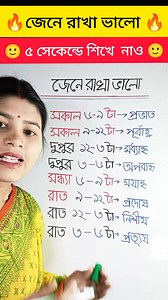 জেনে রাখা ভালো
৫ সেকেন্ডে শিখে নাও
জেনে রাখা ভালো
সকাল ৬-৯টা→প্রভাত
সকাল ৯-১২টা→পূর্বাহ্ন
দুপুর ১২-৩টা→মধ্যাহ্ন
দুপুর ৩-৬টা→অপরাহ্ন
সন্ধ্যা ৬-৯টা→সায়াহ্ন
রাত ৯-১২টা→প্রদোষ
রাত ১২-৩টা→নিশীথ
রাত ৩-৬টা→প্রত্যুষ